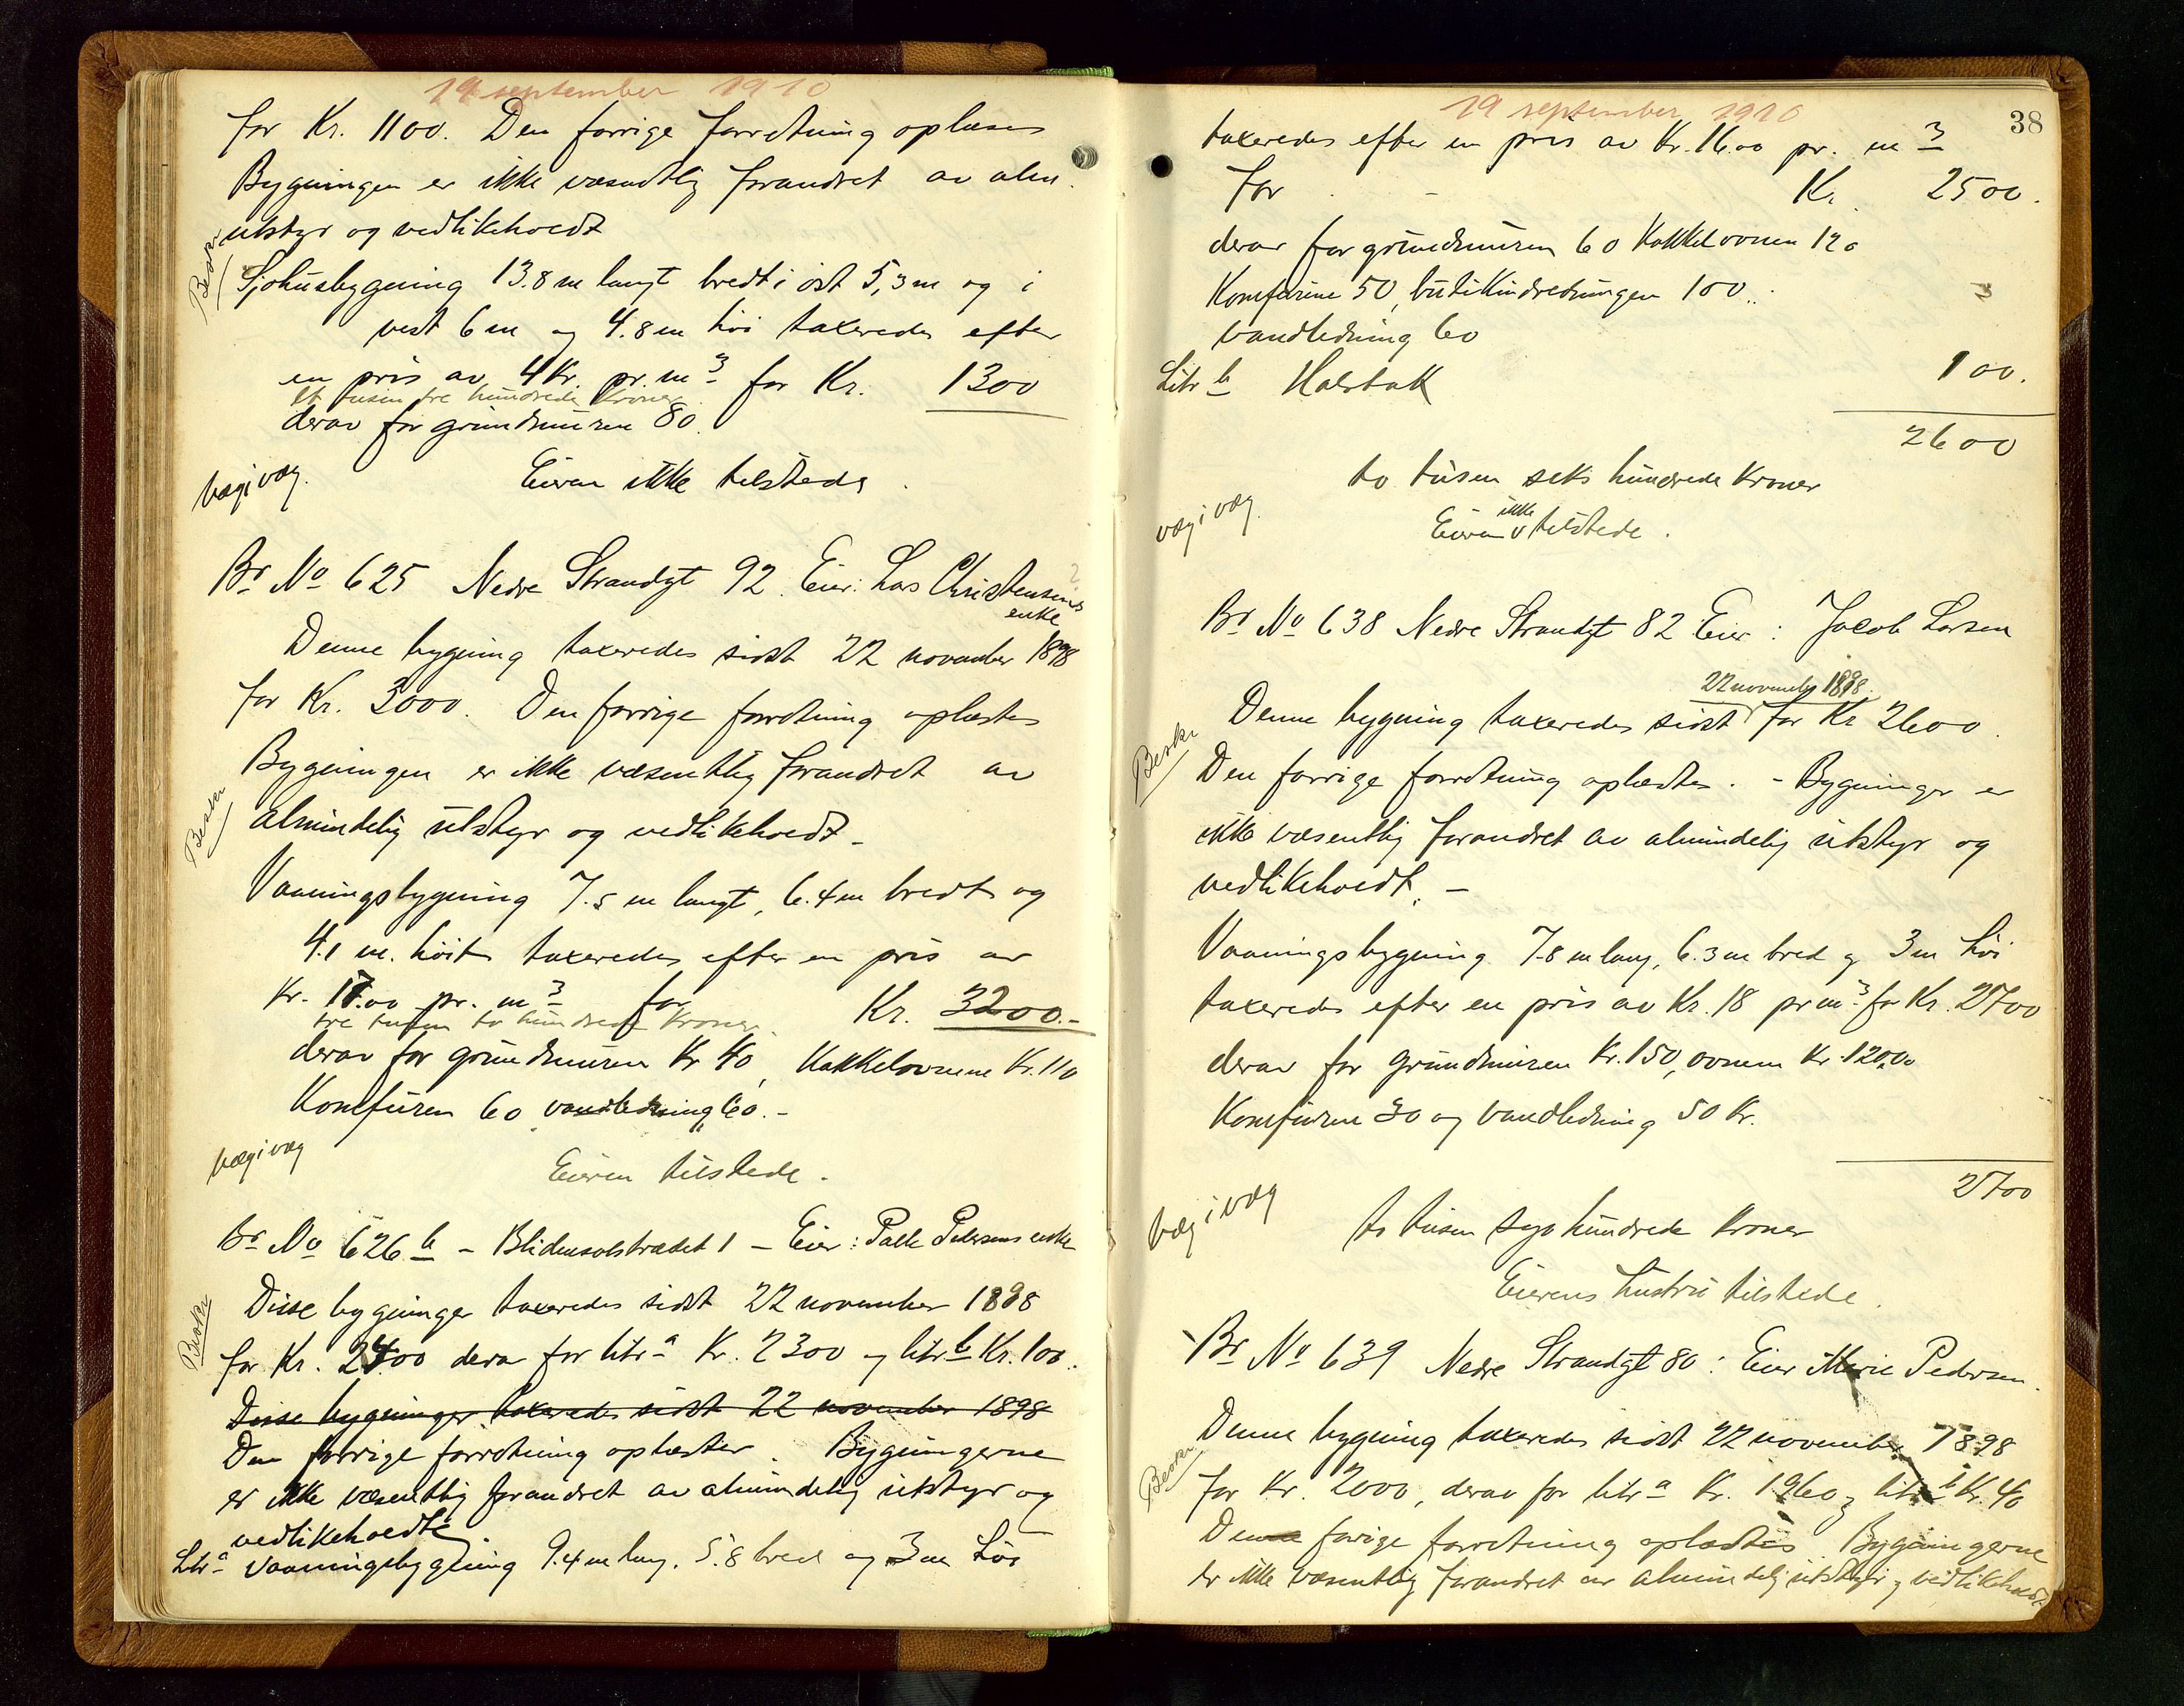 19 september 1910
for Kr. 1100. Den forrige forretning oplæses
Bygningen er ikke væsentlig forandret av alm.
utstyr og vedlikeholdt
Beskr.
Sjøhusbygning 13.8 m langt bredt i øst 5,3 m og i
vest 6 m og 4.8 m høi taxeredes efter
en pris av 4 Kr. pr. m3 for Kr. 1300
Et tusen tre hundrede Kroner
derav for grundmuren 80.
Eieren ikke tilstede.
væg i væg.
Br No 625 Nedre Strandgt 92. Eier: Lars Christensens
enke
Denne bygning taxeredes sidst 22 november 1898
for Kr. 3000. Den forrige forretning oplæstes
Bygningen er ikke væsentlig forandret av
Beskr
almindelig utstyr og vedlikeholdt -
Vaaningsbygning 7.5 m langt, 6.4 m bredt og
4.1 m. høit taxeredes efter en pris av
Kr. 17.00 pr. m3 for Kr. 3200.-
tre tusen to hundrede Kroner.
derav for grundmuren Kr 40, Kakkelovnene Kr. 110
Komfuren 60 vandledning 60.-
væg i væg
Eieren tilstede.
Br No 626 b - Blidensolstrædet 1 - Eier: Palle Pedersens enke
Beskr
Disse bygninger taxeredes sidst 22 november 1898
for Kr. 2400 derav for litr a Kr. 2300 og litr b Kr. 100.
Disse bygninger taxeredes sidst 22 november 1898
Den forrige forretning oplæstes. Bygningerne
er ikke væsentlig forandret av almindelig utstyr og
vedlikeholdte.
Litr a Vaaningsbygning 9.4 m lang, 5.8 bred og 3 m høi
19 september 1910
38
taxeredes efter en pris av Kr. 16.00 pr. m3
for - Kr. 2500.
derav for grundmuren 60 Kakkelovnen 120
Komfurene 50, butikindretningen 100.
vandledning 60
Litr b Halvtak 100.
2600
to tusen seks hundrede Kroner
væg i væg.
ikke
Eieren v tilstede.
Br No 638 Nedre Strandgt 82 Eier: Jacob Larsen
22 november 1898.
Denne bygning taxeredes sidst for Kr 2600.
Beskr
Den forrige forretning oplæstes. - Bygninger er
ikke væsentlig forandret av almindelig utstyr og
vedlikeholdt. -
Vaaningsbygning 7.8 m lang, 6.3 m bred og 3 m høi
taxeredes efter en pris av Kr. 18 pr m3 for Kr. 2700
derav for grundmuren Kr. 150, ovnene Kr. 120.00
Komfurene 30 og vandledning 50 Kr.
2700
væg i væg
to tusen syv hundrede Kroner
Eierens hustru tilstede.
Br No 639 Nedre Strandgt 80: Eier Marie Pedersen.
Denne bygning taxeredes sidst 22 november 1898
Beskr
for Kr. 2000, derav for litr a Kr. 1960 og litr b Kr. 40
Den forige forretning oplæstes Bygningerne
er ikke væsentlig forandret av almindelig utstyr og vedlikeholdt